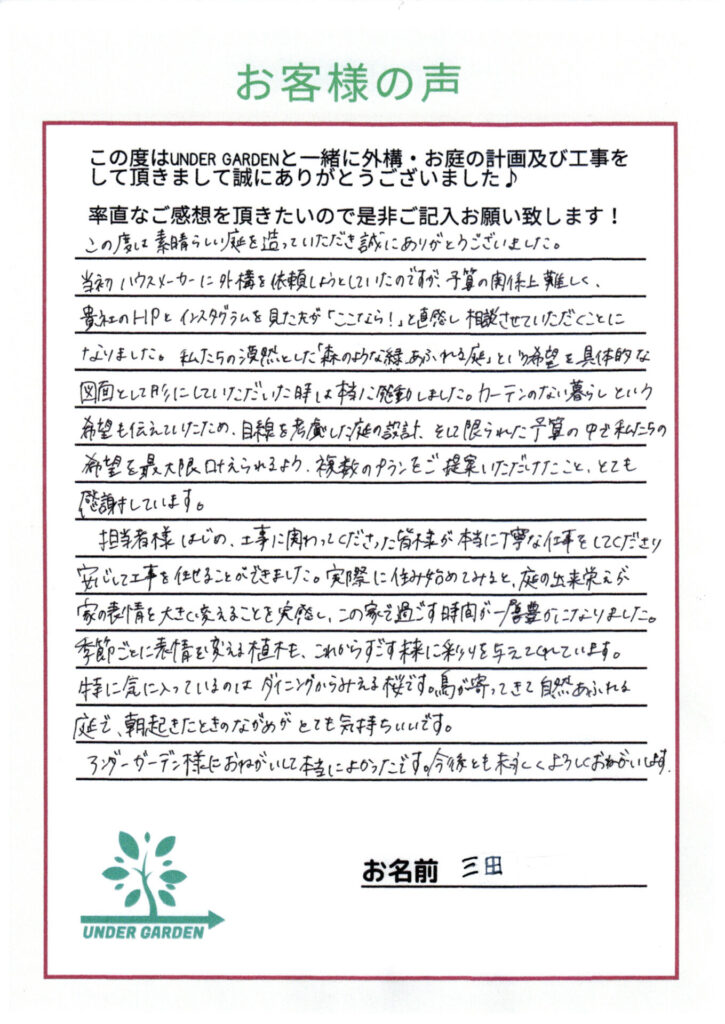 お客様の声
この度はUNDER GARDENと一緒に外構・お庭の計画及び工事を
して頂きまして誠にありがとうございました♪
率直なご感想を頂きたいので是非ご記入お願い致します！
この度は素晴らしい庭を造っていただき誠にありがとうございました。
当初ハウスメーカーに外構を依頼しようとしていたのですが、予算の関係上難しく、
貴社のHPとインスタグラムを見た夫が「ここなら！」と直感し相談させていただくことに
なりました。私たちの漠然とした「森のような緑あふれる庭」という希望を具体的な
図面として形にしていただいた時は本当に感動しました。カーテンのない暮らしという
希望も伝えていたため、目線を考慮した庭の設計、そして限られた予算の中で私たちの
希望を最大限叶えられるよう、複数のプランをご提案いただけたこと、とても
感謝しています。
担当者様はじめ、工事に関わってくださった皆様が本当に丁寧な仕事をしてくださり
安心して工事を任せることができました。実際に住み始めてみると、庭の出来栄えが
家の表情を大きく変えることを実感し、この家で過ごす時間が一層豊かになりました。
季節ごとに表情を変える植木も、これからすごす未来に彩りを与えてくれています。
特に気に入っているのはダイニングからみえる桜です。鳥が寄ってきて自然あふれる
庭で、朝起きたときのながめがとても気持ちいいです。
アンダーガーデン様におねがいして本当によかったです。今後とも末永くよろしくおねがいします
お名前 三田
UNDER GARDEN